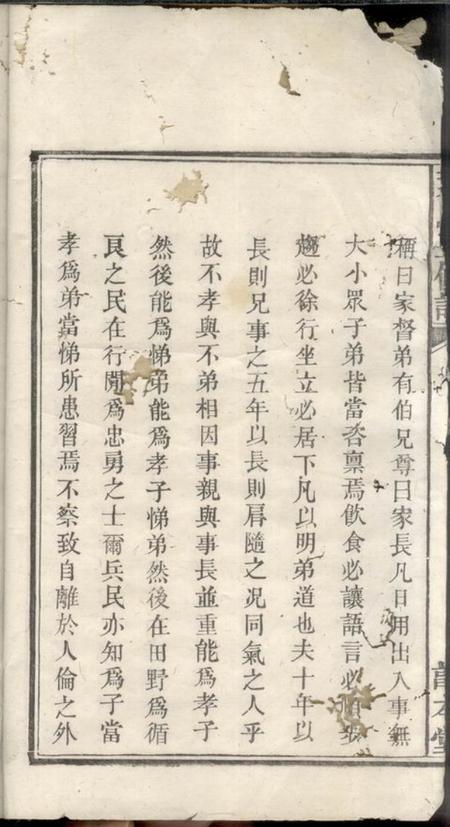 稱曰家督弟有伯兄尊曰家長凡日用出入事無
大小眾子弟皆當咨稟焉飲食必讓語言必順步
趨必徐行坐立必居下凡以明弟道也夫十年以
長則兄事之五年以長則肩隨之况同氣之人乎
故不孝與不弟相因事親與事長並重能為孝子
然後能為悌弟能為孝子悌弟然後在田野為循
良之民在行間為忠勇之士爾兵民亦知為子當
孝為弟當悌所患習焉不察致自離於人倫之外